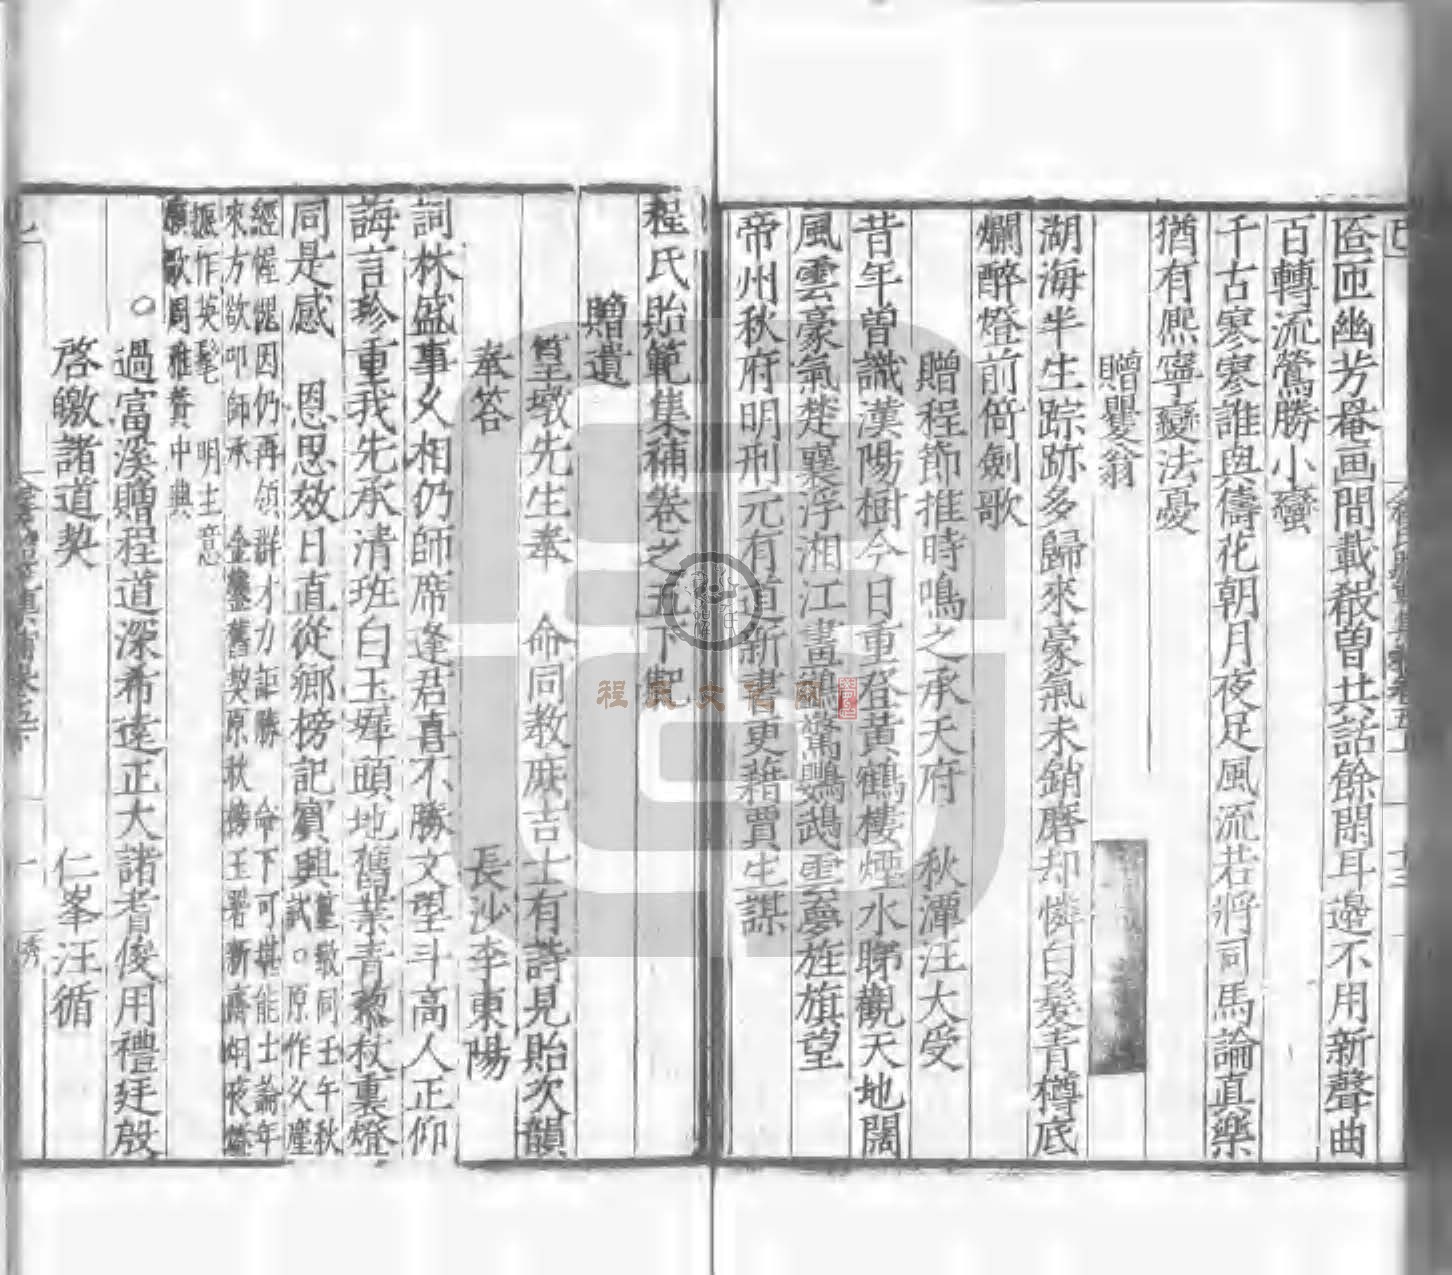 匼匝幽芳菴画間載殽曽共話餘閒耳邊不用新聲曲
百轉流鶯勝小蠻
千古寒寒誰與儔花朝月夜足風流若將司馬論真樂
猶有熈寧變法憂
贈矍翁
湖海半生踪跡多歸來豪氣未銷磨却憐白髮青樽底
爛醉燈前倚劍歌
贈程節推時鳴之承天府 秋潭汪大受
昔年曽識漢陽樹今日重登黃鶴樓煙水睇觀天地闊
風雲豪氣楚襄浮湘江畫鷁驚鸚鵡雲夢旌旗望
帝州秋府明刑元有道新書更藉賈生謀
程氏貽範集補卷之五下
贈遺
篁墩先生奉 命同教庶吉士有詩見貽次韻
奉答 長沙李東陽
詞林盛事久相仍師席逢君喜不勝文望斗高人正仰
誨言珍重我先承清班白玉墀頭地舊業青藜杖裏燈
同是感 恩思效日直從鄉榜記賓興 篁墩同壬午秋
試○原作久塵
經幄愧因仍再領群才力詎勝 命下可堪能士論年
來方欲叩師承 金鑾舊契原秋榜玉署新齋炯夜燈
振作英髦 明主意
賡歌周雅贊中興
○過富溪贈程道深希逵正大諸耆俊用禮廷殷
啓皦諸道契 仁峯汪循
程氏文宅网